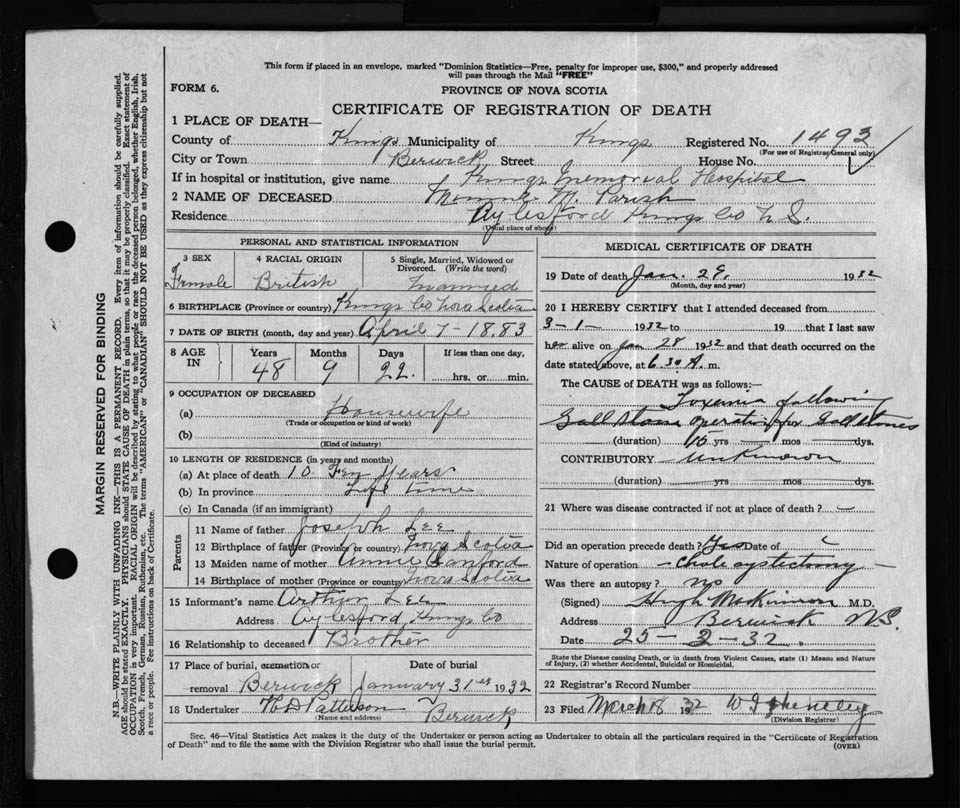 This form if placed in an envelope, marked "Dominion Statistics—Free, penalty for improper use, $300," and properly addressed
will pass through the Mail "FREE"
FORM 6.
PROVINCE OF NOVA SCOTIA
CERTIFICATE OF REGISTRATION OF DEATH
1 PLACE OF DEATH—
County of Kings Municipality of Kings Registered No. 1493
(For use of Registrar General only)
City or Town Berwick Street House No.
If in hospital or institution, give name Kings Memorial Hospital
2 NAME OF DECEASED M. Parish
Residence Aylesford Kings Co N.S.
(Usual place of abode)
PERSONAL AND STATISTICAL INFORMATION
3 SEX 4 RACIAL ORIGIN 5 Single, Married, Widowed or
Divorced. (Write the word)
Female British Married
6 BIRTHPLACE (Province or country) Kings Co Nova Scotia
7 DATE OF BIRTH (month, day and year) April 7 - 1883
8 AGE IN Years Months Days If less than one day,
48 9 22 hrs. or min.
9 OCCUPATION OF DECEASED
(a) Housewife
(Trade or occupation or kind of work)
(b)
(Kind of industry)
10 LENGTH OF RESIDENCE (in years and months)
(a) At place of death 10 Years
(b) In province Life time
(c) In Canada (if an immigrant)
Parents
11 Name of father Joseph Lee
12 Birthplace of father (Province or country) Nova Scotia
13 Maiden name of mother Annie Sanford
14 Birthplace of mother (Province or country) Nova Scotia
15 Informant's name Arthur Lee
Address Aylesford, Kings Co
16 Relationship to deceased Brother
17 Place of burial, cremation or Date of burial
removal Berwick January 31st 1932
18 Undertaker Patterson Berwick
(Name and address)
MEDICAL CERTIFICATE OF DEATH
19 Date of death Jan. 29, 1932
(Month, day and year)
20 I HEREBY CERTIFY that I attended deceased from
3-1- 1932 to 19 that I last saw
her alive on Jan 28 1932 and that death occurred on the
date stated above, at 6.30 A. m.
The CAUSE of DEATH was as follows:—
Toxemia following
operation for Gall stones
(duration) 15 yrs mos dys.
CONTRIBUTORY Unknown
(duration) yrs mos dys.
21 Where was disease contracted if not at place of death? —
Did an operation precede death? Yes Date of
Nature of operation - Cholecystectomy -
Was there an autopsy? No
(Signed) Hugh McKinnon M.D.
Address Berwick N.S.
Date 25-2-32.
State the Disease causing Death, or in death from Violent Causes, state (1) Means and Nature
of Injury, (2) whether Accidental, Suicidal or Homicidal.
22 Registrar's Record Number
23 Filed March 1932
(Division Registrar)
Sec. 46—Vital Statistics Act makes it the duty of the Undertaker or person acting as Undertaker to obtain all the particulars required in the "Certificate of Registration
of Death" and to file the same with the Division Registrar who shall issue the burial permit. (OVER)
MARGIN RESERVED FOR BINDING
N.B.—WRITE PLAINLY WITH UNFADING INK—THIS IS A PERMANENT RECORD. Every item of information should be carefully supplied.
AGE should be stated EXACTLY. PHYSICIANS should STATE CAUSE OF DEATH in plain terms, so that it may be properly classified. Exact statement of
OCCUPATION is very important. RACIAL ORIGIN will be described by stating to what people or race the deceased person belonged, whether English, Irish,
Scotch, French, German, Russian, Ruthenian, etc. The terms "AMERICAN" or "CANADIAN" SHOULD NOT BE USED as they express citizenship but not
a race or people. Fee instructions on back of Certificate.